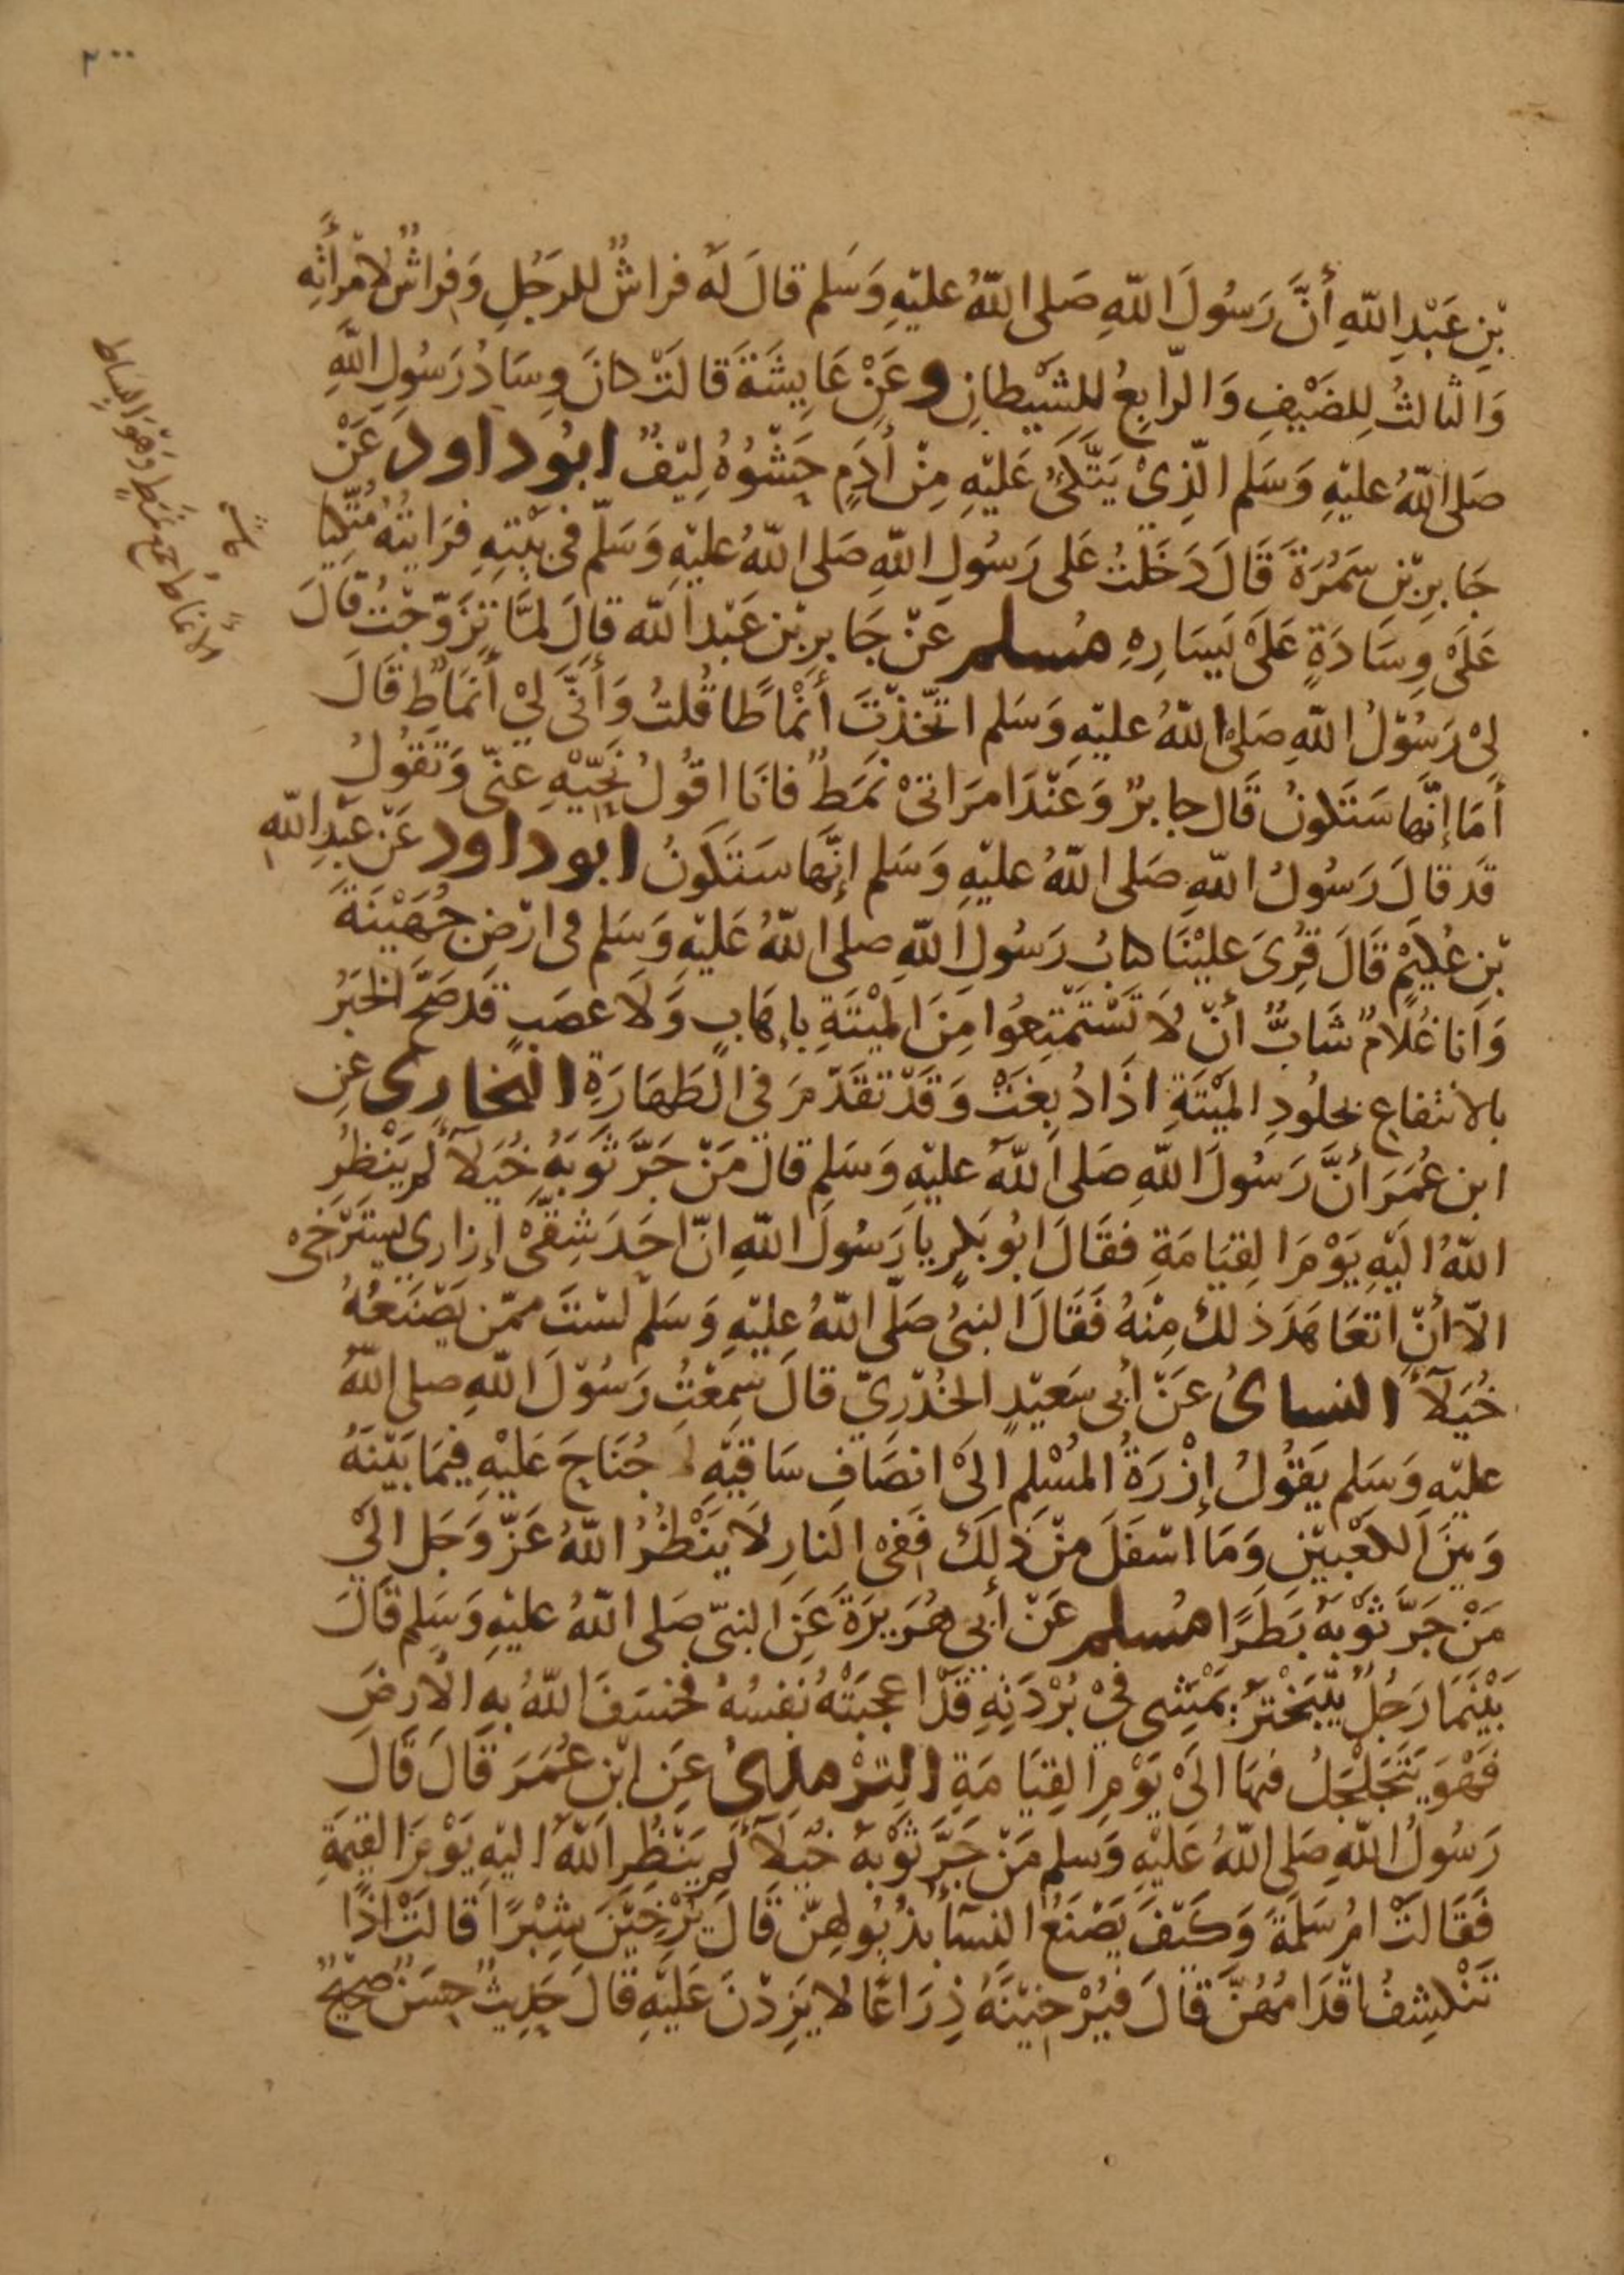 ٢٠٠
بْنِ عَبْدِ اللّهِ أَنَّ رَسُولَ اللّهِ صَلى اللّهُ عليْهِ وَسَلم قالَ لَه فراشٌ للرَجُلِ وَفراشٌ لامْرأتِهِ
وَالثالثُ لِلضَيْفِ وَالرّابِعُ لِلشَيْطانِ وعَنْ عَايِشَةَ قَالَتْ كانَ وِسَادُ رَسُولِ اللّهِ
صَلى اللّهُ عليْهِ وَسَلم الّذِيْ يَتَّكئُ عَليْهِ مِنْ أدَمٍ حَشْوُهُ لِيْفٌ ابُوداود عَنْ
جَابِرِ بْنِ سَمُرَةَ قَالَ دَخَلتُ عَلى رَسُولِ اللّهِ صَلى اللّهُ عليْهِ وَسَلّم فى بَيْتِهِ فَرَايتُهُ مُتّكِيًا
عَلَىْ وِسَادَةٍ عَلَىْ يَسَارِهِ مُسلم عَنْ جَابِرِ بْن عَبْدِ اللّه قالَ لمَّا تَزَوّجْتُ قالَ
لِىْ رَسُوْلُ اللّهِ صَلىْ اللّهُ عليْهِ وَسَلم اتّخَذْتَ أنْمَاطًا قُلتُ وَأَنَّى لِيْ أنمَاطٌ قَالَ
أمَا إنَّها سَتَكونُ قَال جابرٌ وَعَنْدَ امرَاتىْ نَمَطٌ فانَا اقُولُ نَحّيْهِ عَنّى وَتَقُولُ
قَد قالَ رَسُولُ اللّهِ صَلى اللّهُ عليْهِ وَسَلم إنّهَا سَتَكونُ ابوداود عَنْ عَبْدِ اللّهِ
بْنِ عُكَيْمٍ قَالَ قُرِىَ عليْنَا كتابُ رَسُولِ اللّهِ صلى اللّهُ عَليْهِ وَسَلم فى ارْضِ جُهَيْنَةَ
وَانا غُلامٌ شَابٌّ أنْ لاَ تَسْتَمْتِعُوا مِنَ الميْتَةِ باِهَابٍ وَلَا عصَبٍ قَد صَحَّ الخبَرُ
بالانتفاع بجلُودِ الميْتَةِ اذَا دُبِغَتْ وَقَدْ تقَدّمَ فى الطَهَارَةِ البخارى عَنِ
ابن عُمَرَ أنَّ رَسُولَ اللّهِ صَلى اللّهُ عليْهِ وَسَلم قالَ مَنْ جَرَّ ثَوْبَهُ خُيَلآ لم يَنْظُر
اللّهُ اليْهِ يَوْمَ القِيَامَةِ فقَالَ ابُو بَكرٍ يا رَسُولَ اللّهِ انّ احَدَ شِقّىْ إزارى يَسْتَرْخىْ
الاّ أنْ اتعَاهَدَ ذلكَ مِنْهُ فَقَالَ النبىُّ صَلّى اللّهُ عليْهِ وَسَلّم لسْتَ ممّن يَصْنَعُهُ
خُيَلآ النساىُ عَنْ أبى سَعيْدٍ الخُدْرِيّ قالَ سَمِعْتُ رَسُوْلَ اللّهِ صلى اللّهُ
عليْهِ وَسَلم يَقُولُ إزْرَةُ المُسْلمِ الىْ انصَافِ سَاقَيْهِ لاَ جُنَاحَ عَليْهِ فيمَا بَيْنَهُ
وَبيْنَ الكَعْبيْنِ وَمَا اسْفَلَ مِنْ ذَلِكَ فَفىْ النارِ لاَ يَنْظُرُ اللّهُ عَزّ وَجَل الىْ
مَنْ جَرَّ ثَوْبَهُ بَطَرًا مُسلم عَنْ أبى هُرَيرَةَ عَنِ النبىّ صَلى اللّهُ عليْهِ وَسَلم قالَ
بَيْنَمَا رَجُلٌ يتَبَخْترُ يَمْشِى فىْ بُرْدَتِهِ قَدْ اعجَبَتْهُ نَفسُهُ فخسَفَ اللّهُ بهِ الارضَ
فَهْوَ يَتَجَلجَلُ فيهَا الَىْ يَوْمِ القِيَامَةِ الترْمذىُ عَنِ ابْنِ عُمَرَ قَالَ قَالَ
رَسُولُ اللّهِ صَلى اللّهُ عَليْهِ وَسلم مَنْ جَرَّ ثَوْبَهُ خُيَلآ لَم يَنْظُرِ اللّهُ اليْهِ يَوْمَ القِيمَةِ
فَقَالَتْ امُ سَلَمَةَ وَكَيْفَ يَصْنَعُ النسآ بذُيُولِهِنّ قَالَ يُرْخِيْنَ شِبْرًا قَالَتْ اذًا
تَنْكشِفُ اقْدَامُهُنَّ قَالَ فَيُرْخِيْنَهُ ذِرَاعًا لا يَزِدْنَ عَليْهِ قالَ حَدِيثٌ حسَنٌ صحيْحٌ
الانماط جمع نمَطٍ وَهْوَ البساط